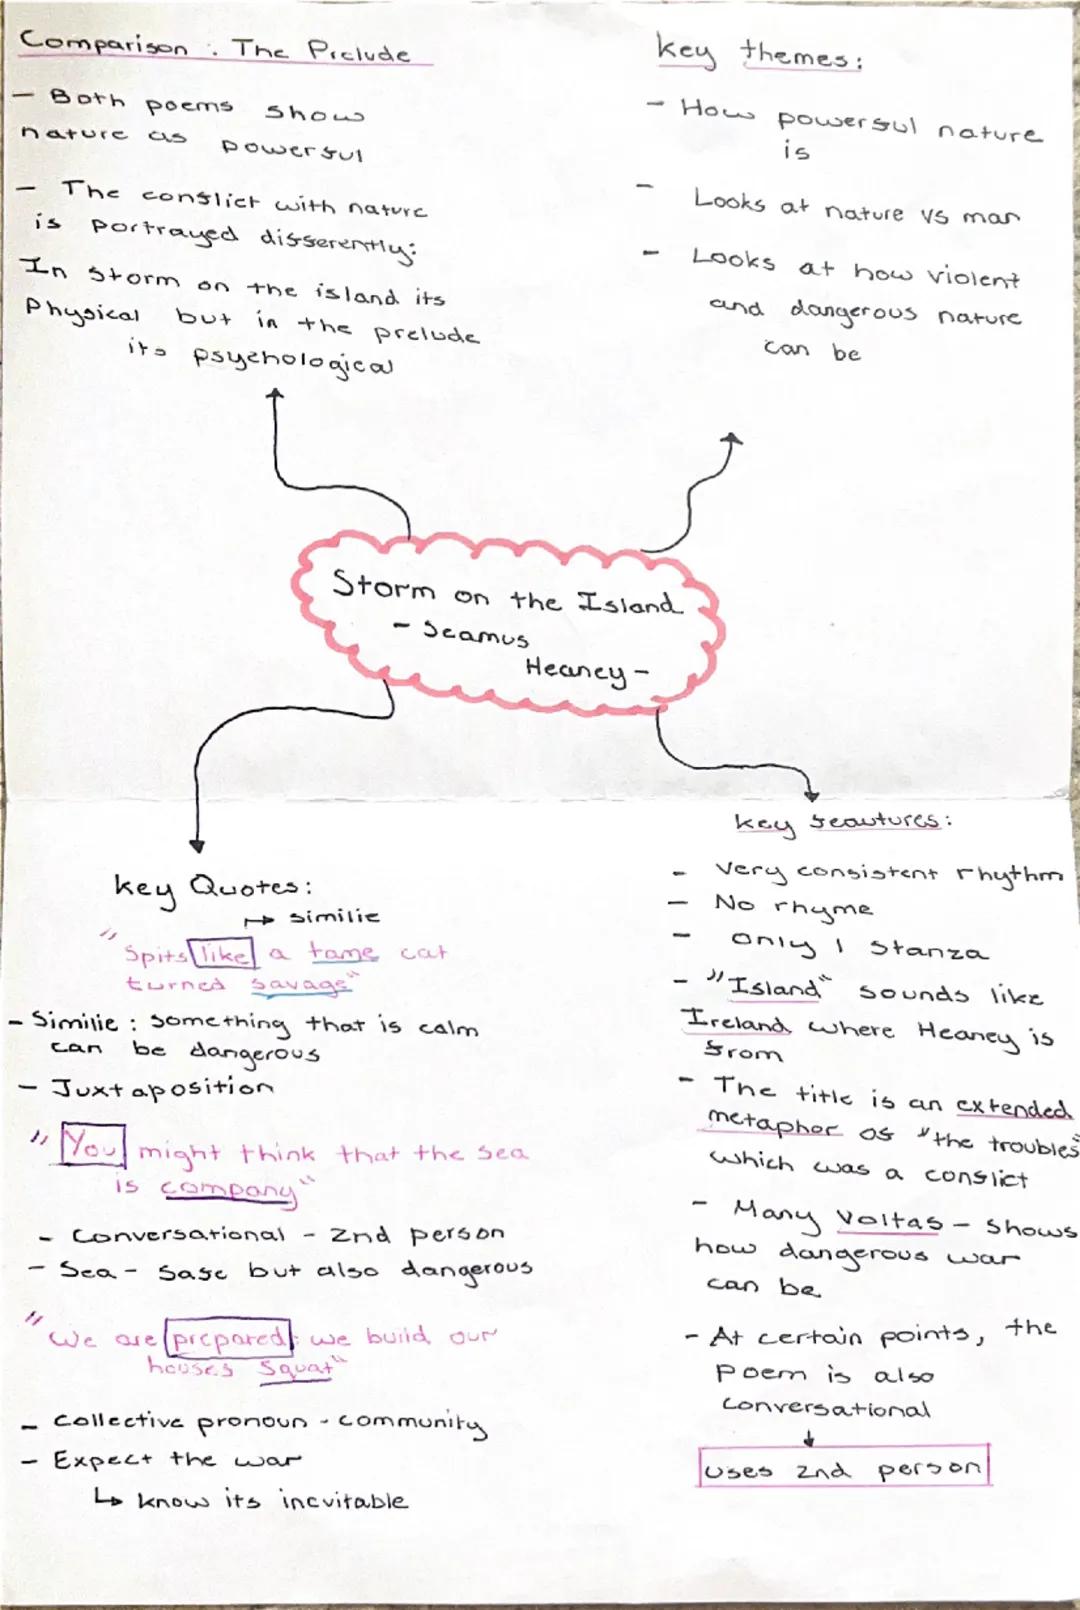 Comparison : The Prelude
- Both poems show
nature as powerful
- The conflict with nature
is portrayed differently:
In storm on the island its
Physical but in the prelude
its psychological
key themes:
- How powerful nature
is
- Looks at nature vs man
- Looks at how violent
and dangerous nature
can be
Storm on the Island
- Seamus
Heaney -
key Quotes:
↦ similie
"Spits like a tame cat
turned savage"
- Similie : something that is calm
can be dangerous
- Juxtaposition
"You might think that the sea
is company"
- Conversational - 2nd person
- Sea - safe but also dangerous
"We are prepared: we build our
houses squat"
- collective pronoun - community
- Expect the war
↳ know its inevitable
key feautures:
- Very consistent rhythm
- No rhyme
- only 1 stanza
- "Island" sounds like
Ireland where Heaney is
from
- The title is an extended
metaphor of "the troubles"
which was a conflict
- Many voltas - shows
how dangerous war
can be
- At certain points, the
poem is also
conversational
↓
uses 2nd person